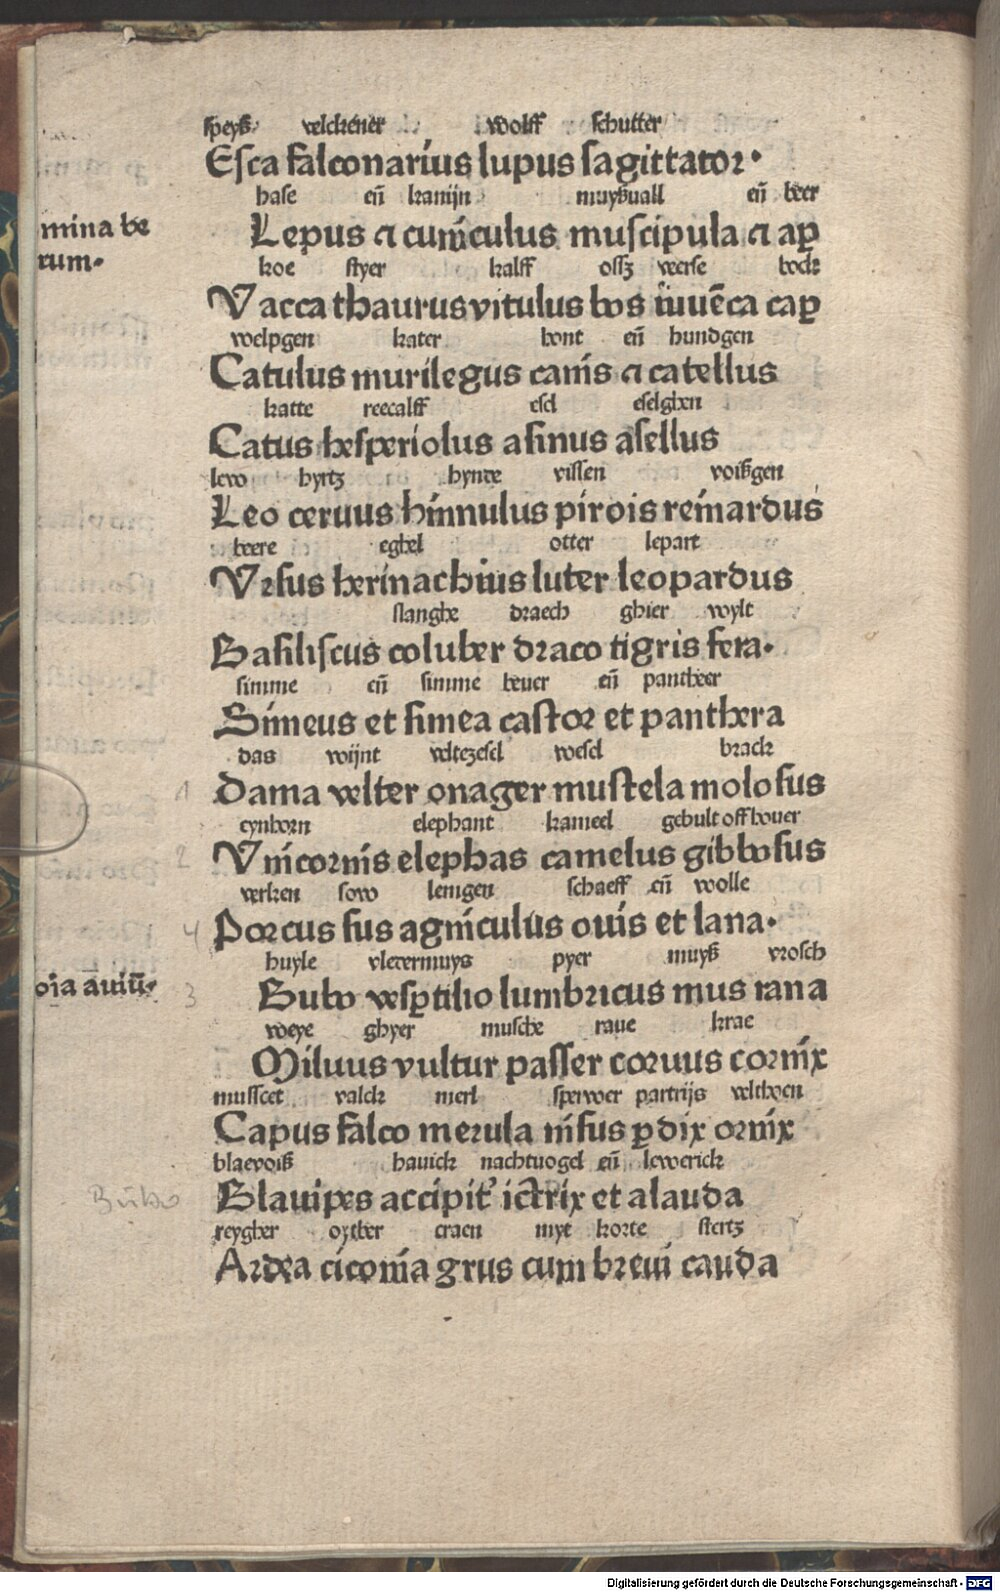 speyß velckener wolff schutter
Esca falconarius lupus sagittator.
hase eñ kanijn muyßuall eñ beer
mina be
Lepus ⁊ cuniculus muscipula ⁊ aꝑ
rum.
koe styer kalff ossz veerse bock
Vacca thaurus vitulus bos iuuēca caꝑ
welpgen kater hont eñ hundgen
Catulus murilegus canis ⁊ catellus
katte reecalff esel eselghen
Catus hesperiolus asinus asellus
lewo hyrtz hynde vissen voißgen
Leo ceruus hinnulus pirois reinardus
beere eghel otter lepart
Vrsus herinachius luter leopardus
slanghe draech ghier wylt
Basiliscus coluber draco tigris fera.
simme eñ simme beuer eñ pantheer
Simeus et simea castor et panthera
das wijnt veltezesel wesel brack
Dama velter onager mustela molosus
eynhorn elephant kameel gebult off houer
Vnicornis elephas camelus gibbosus
verken sowo lemgen schaeff eñ wolle
Porcus sus agniculus ouis et lana.
huyle vledermuys pyer muyß vrosch
oīa auiū.
Bubo vesꝑtilio lumbricus mus rana
weye ghyer musche raue krae
Miluus vultur passer coruus cornix
musscet valck merl sperwer partrijs velthoen
Capus falco merula nisus ꝑdix ornix
blaevoiß hauick nachtuogel eñ lewerick
Bubo
Blauipes accipit' ictrix et alauda
reygher oyther craen myt korte stertz
Ardea ciconia grus cum breui cauda
1
2
4
3
Digitalisierung gefördert durch die Deutsche Forschungsgemeinschaft - DFG